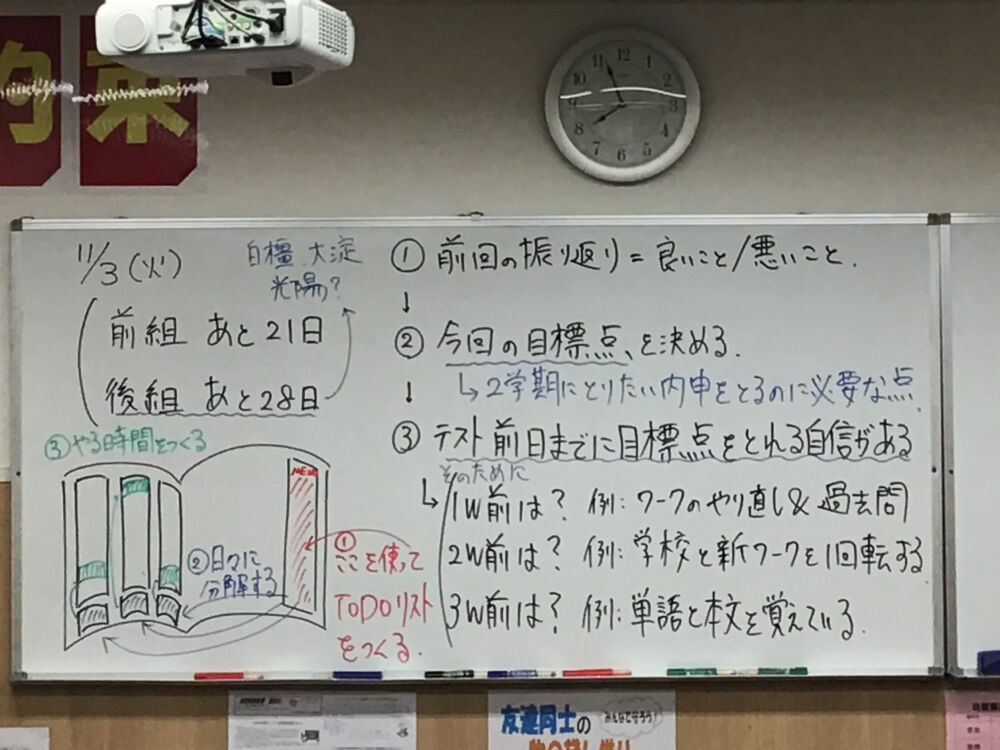 約束
12 1 2 3 4 5 6 7 8 9 10 11
11/3(火)
白橿 大淀
光陽?
前組 あと21日
後組 あと28日
① 前回の振り返り = 良いこと/悪いこと.
↓
② 今回の目標点を決める.
↳ 2学期にとりたい内申をとるのに必要な点
↓
③ テスト前日までに目標点をとれる自信がある
そのために
↳ 1W前は? 例: ワークのやり直し & 過去問
2W前は? 例: 学校と新ワークを1回転する
3W前は? 例: 単語と本文を覚えている.
③やる時間をつくる
MEMO
②日々に
分解する
①
ここを使って
TODOリスト
をつくる.
友達同士の
みんなで守ろう!
物の貸し借り